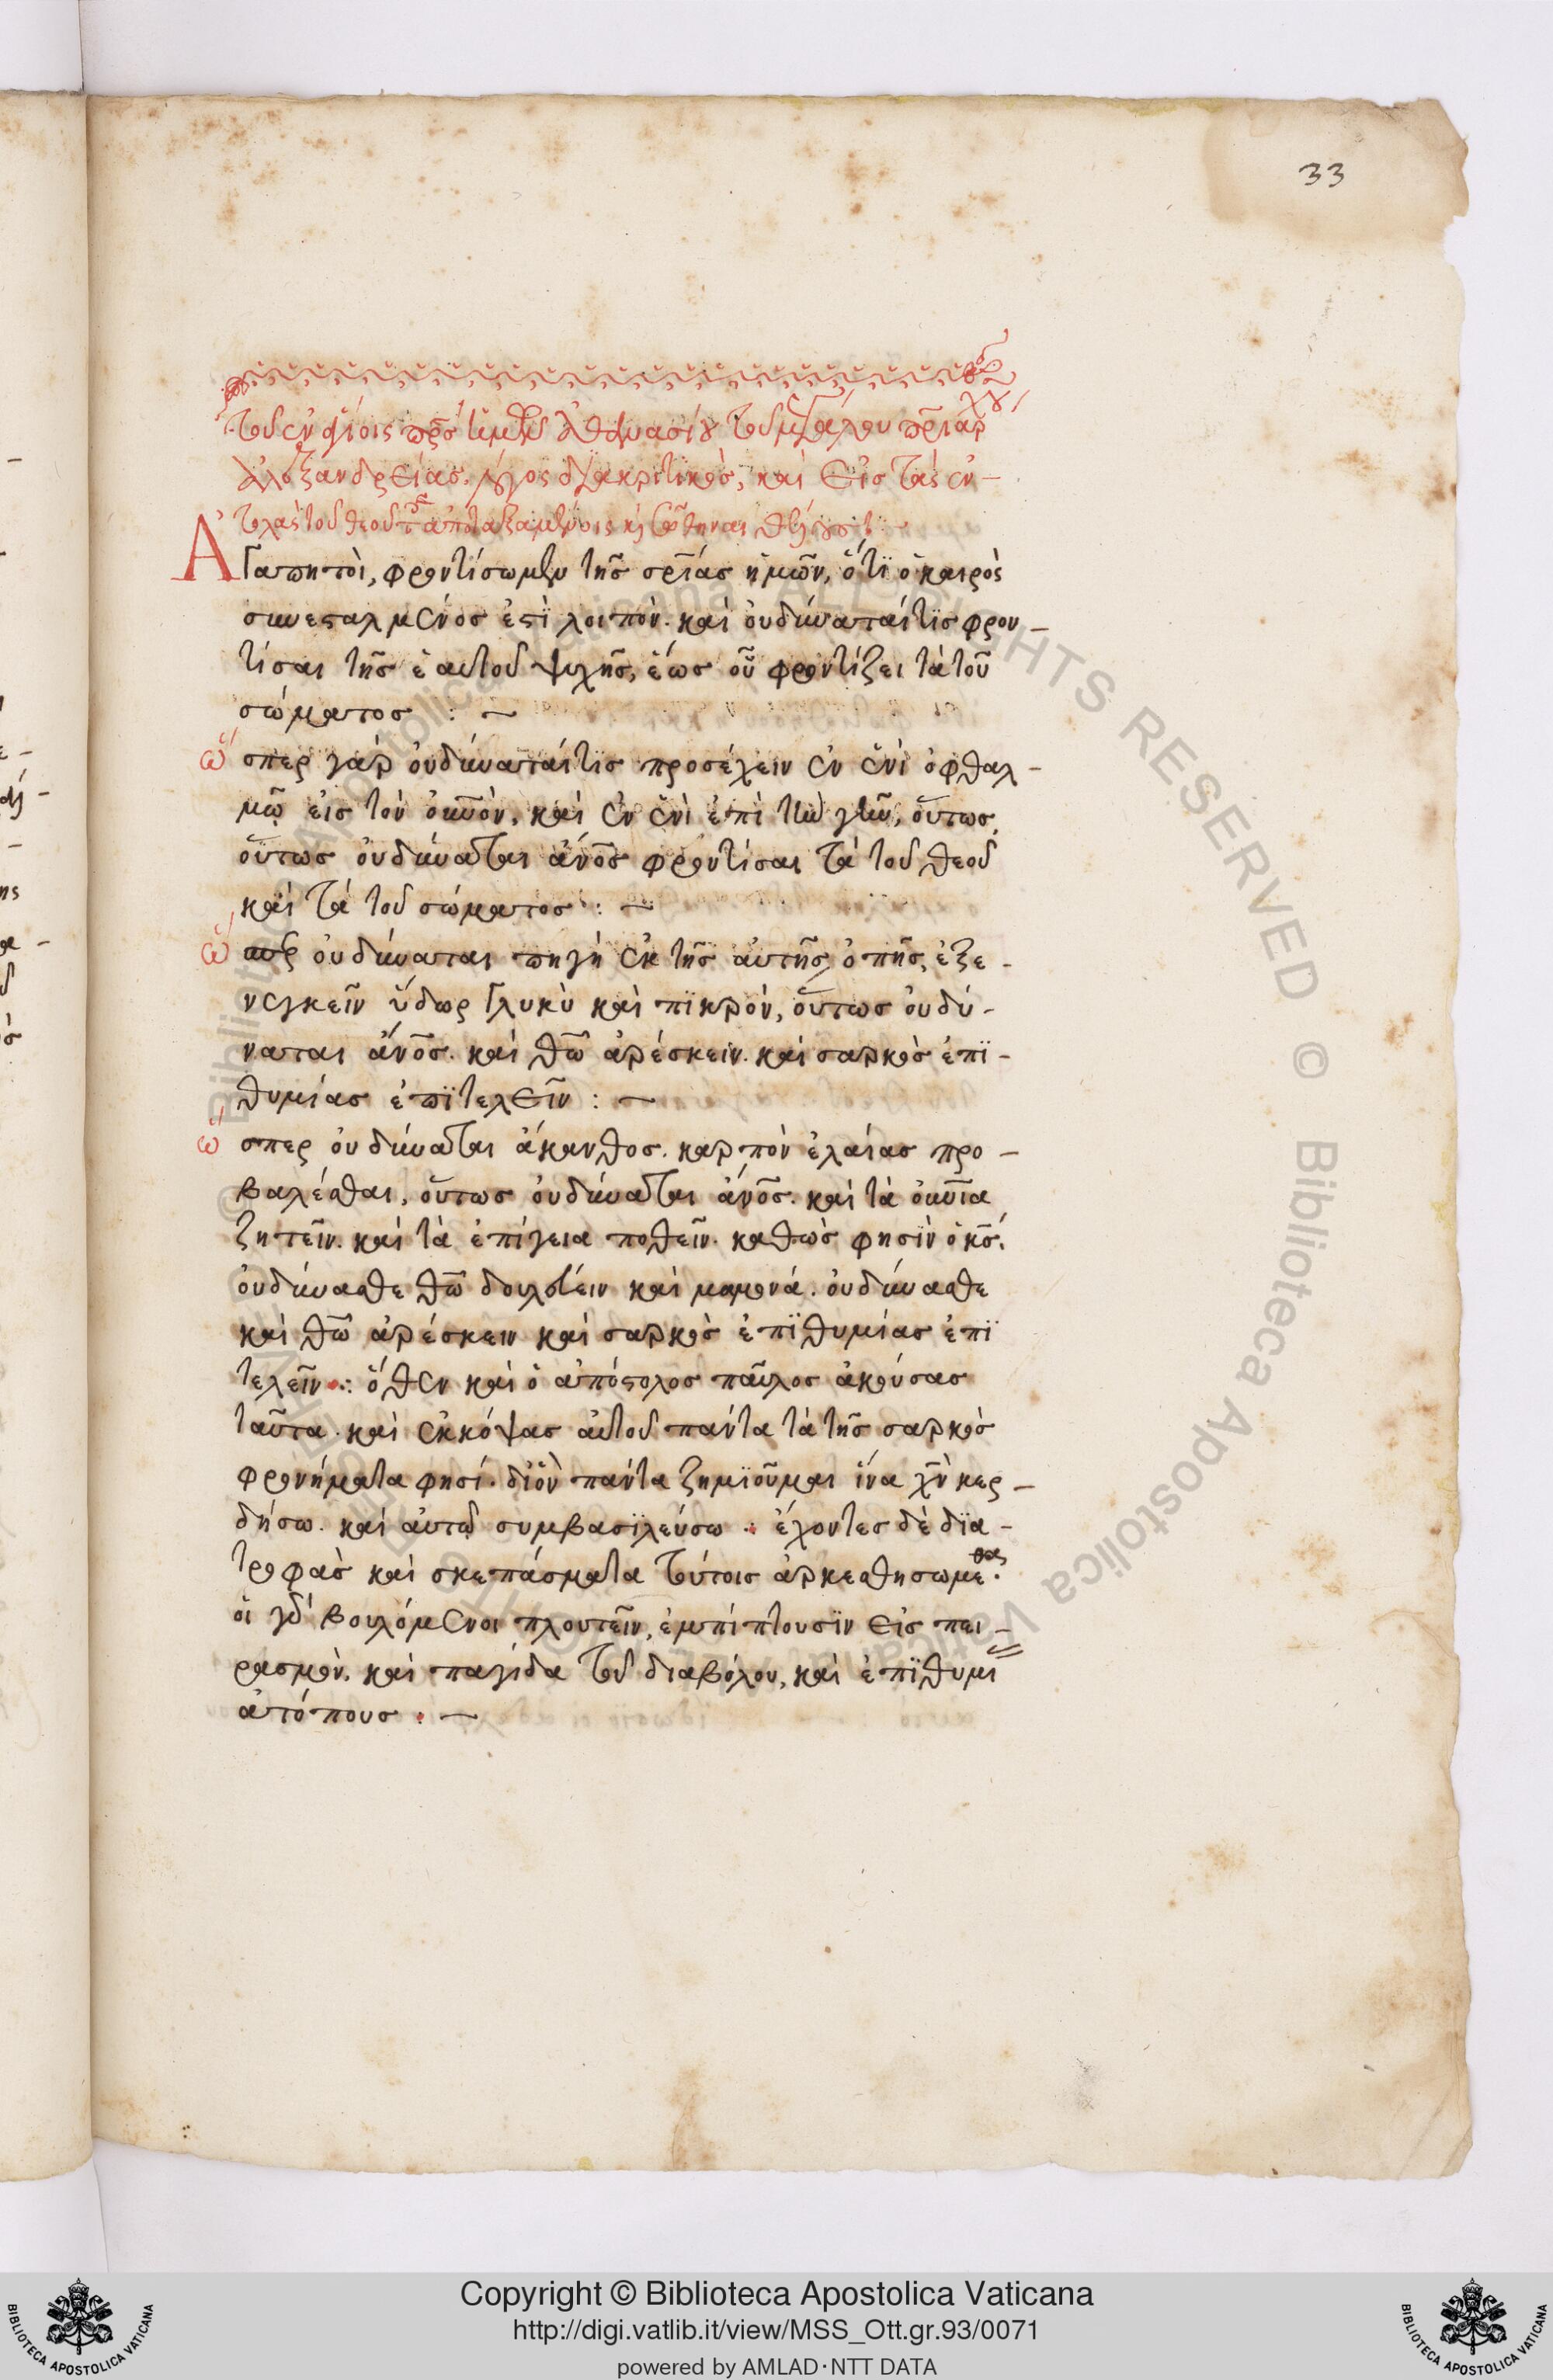 33
τοῦ ἐν ἁγίοις πρ̅σ ἡμῶν ἀθανασίου τοῦ μεγάλου πρ̅ιάρ
χου
ἀλεξανδρείας. λόγος διακριτικὸς, καὶ εἰσ τὰς ἐν-
τολὰς τοῦ θεοῦ τοῖς ἀποταξαμένοις κ̀ σωθῆναι θέλουσι
Ἀγαπητοὶ, φροντίσωμεν τῆς σρ̅ίας ἡμῶν, ὅτι ὁ καιρὸς
συνεσταλμένος ἐστὶ λοιπόν. καὶ οὐ δύναταί τις φρον-
τίσαι τῆς ἑαυτοῦ ψυχῆς, ἕως οὗ φροντίζει τὰ τοῦ
σώματος : ~
ὥσπερ γὰρ οὐ δύναταί τις προσέχειν ἐν ἑνὶ ὀφθαλ-
μῷ εἰς τὸν οὐ̅νὸν, καὶ ἐν ἑνὶ ἐπὶ τὴν γῆν, οὕτως,
οὕτως οὐ δύναται ἄν̅ος φροντίσαι τὰ τοῦ θεοῦ
καὶ τὰ τοῦ σώματος : ~
ὥσπερ οὐ δύναται πηγὴ ἐκ τῆς αὐτῆς ὀπῆς, ἐξε-
νεγκεῖν ὕδωρ γλυκὺ καὶ πϊκρὸν, οὕτως οὐ δύ-
ναται ἄν̅ος. καὶ θ̅ω ἀρέσκειν. καὶ σαρκὸς ἐπϊ-
θυμίας ἐπϊτελεῖν : ~
ὥσπερ οὐ δύναται ἄκανθος. καρπὸν ἐλαίας προ-
βαλέσθαι, οὕτως οὐ δύναται ἄν̅ος. καὶ τὰ οὐ̅νια
ζητεῖν. καὶ τὰ ἐπίγεια ποθεῖν. καθὼς φησὶν ὁ κ̅ς.
οὐ δύνασθε θ̅ω δουλεύειν καὶ μαμονά. οὐ δύνασθε
καὶ θ̅ω ἀρέσκειν καὶ σαρκὸς ἐπϊθυμίας ἐπϊ
τελεῖν .: ὅθεν καὶ ὁ ἀπόστολος παῦλος ἀκούσας
ταῦτα. καὶ ἐκκόψας αὐτοῦ πάντα τὰ τῆς σαρκὸς
φρονήματα φησί. δϊ ὃν πάντα ζημϊοῦμαι ἵνα χ̅ν κερ-
δήσω. καὶ αὐτῷ συμβασϊλεύσω .. ἔχοντες δὲ δϊα-
τροφὰς καὶ σκεπάσματα τούτοις ἀρκεσθησωμεθα.
οἱ γὰρ βουλόμενοι πλουτεῖν, ἐμπίπτουσϊν εἰς πει-
ρασμὸν. καὶ παγίδα τοῦ διαβόλου, καὶ ἐπϊθυμι
ἀτόπους : ~
Copyright © Biblioteca Apostolica Vaticana
http://digi.vatlib.it/view/MSS_Ott.gr.93/0071
powered by AMLAD·NTT DATA